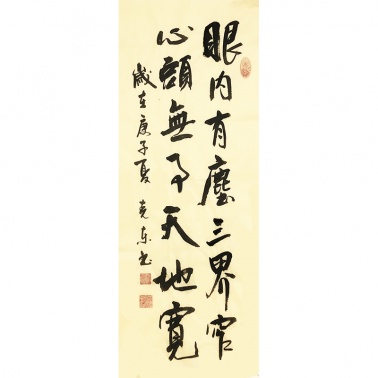 眼内有塵三界窄
心頭無事天地寬
歲在庚子夏 克東书